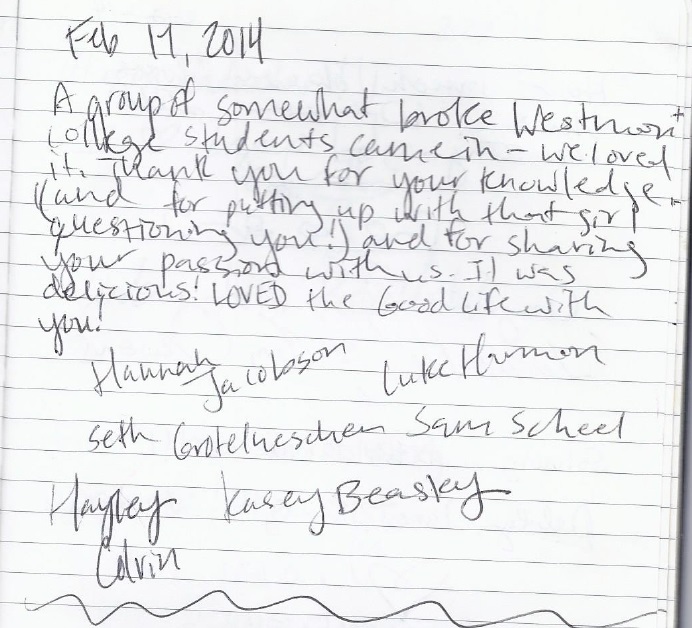 Feb 17, 2014
A group of somewhat broke Westmont
college students came in - we loved
it. Thank you for your knowledge
(and for putting up with that girl
questioning you!) and for sharing
your passion with us. It was
delicious! LOVED the Good Life with
you!
Hannah Jacobson Luke Harmon
Seth Grotelueschen Sam Scheel
Hayley Kasey Beasley
Calvin